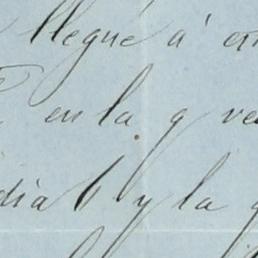 llegué á
en la q
dia 6 y la q